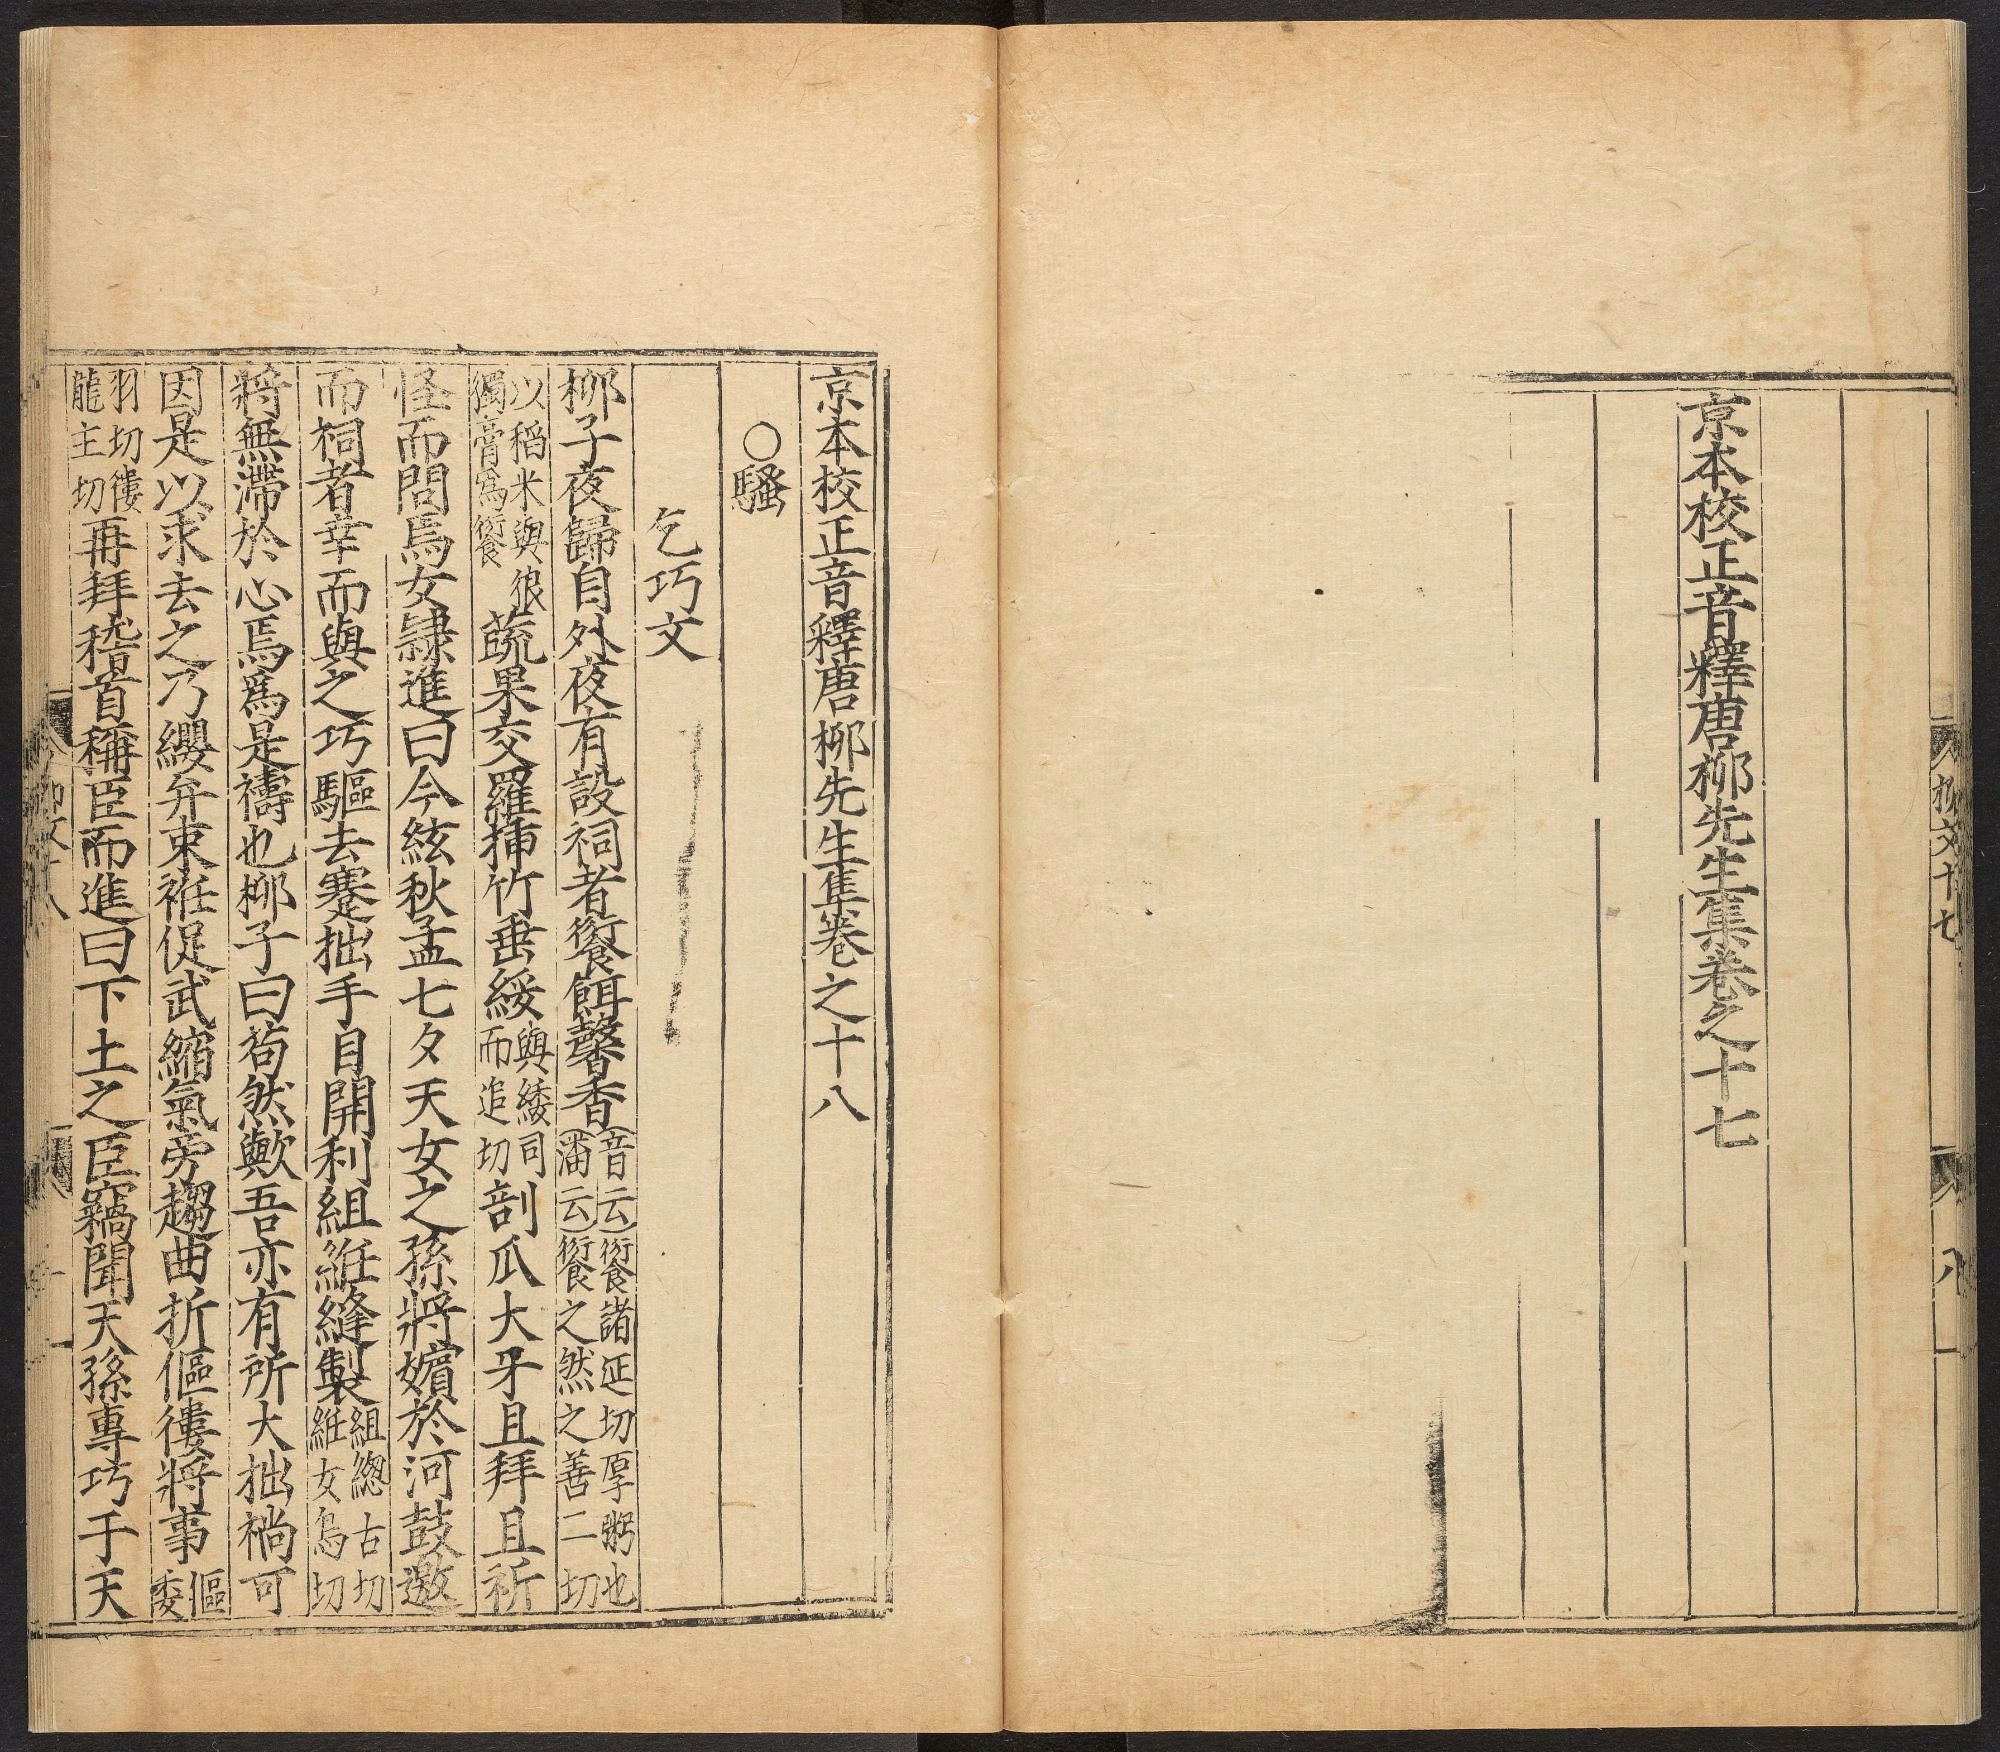 京本校正音釋唐柳先生集卷之十七
柳文十七
八
京本校正音釋唐柳先生集卷之十八
○騷
乞巧文
柳子夜歸自外夜有設祠者餰餌馨香(音云)餰諸延切厚粥也(潘云)餰之然之善二切
以稻米與狼獨膏爲餰蔬果交羅揷竹垂綏與緌同而追切剖瓜大牙且拜且祈
怪而問焉女隷進曰今絃秋孟七夕天女之孫將嬪於河鼓邀
而祠者幸而與之巧驅去蹇拙手目開利組絍縫製組緫古切絍女鳥切
將無滯於心焉爲是禱也柳子曰苟然歟吾亦有所大拙倘可
因是以求去之乃纓弁束袵促武縮氣旁趨曲折傴僂將事傴委
羽切僂龍主切再拜稽首稱臣而進曰下土之臣竊聞天孫專巧于天